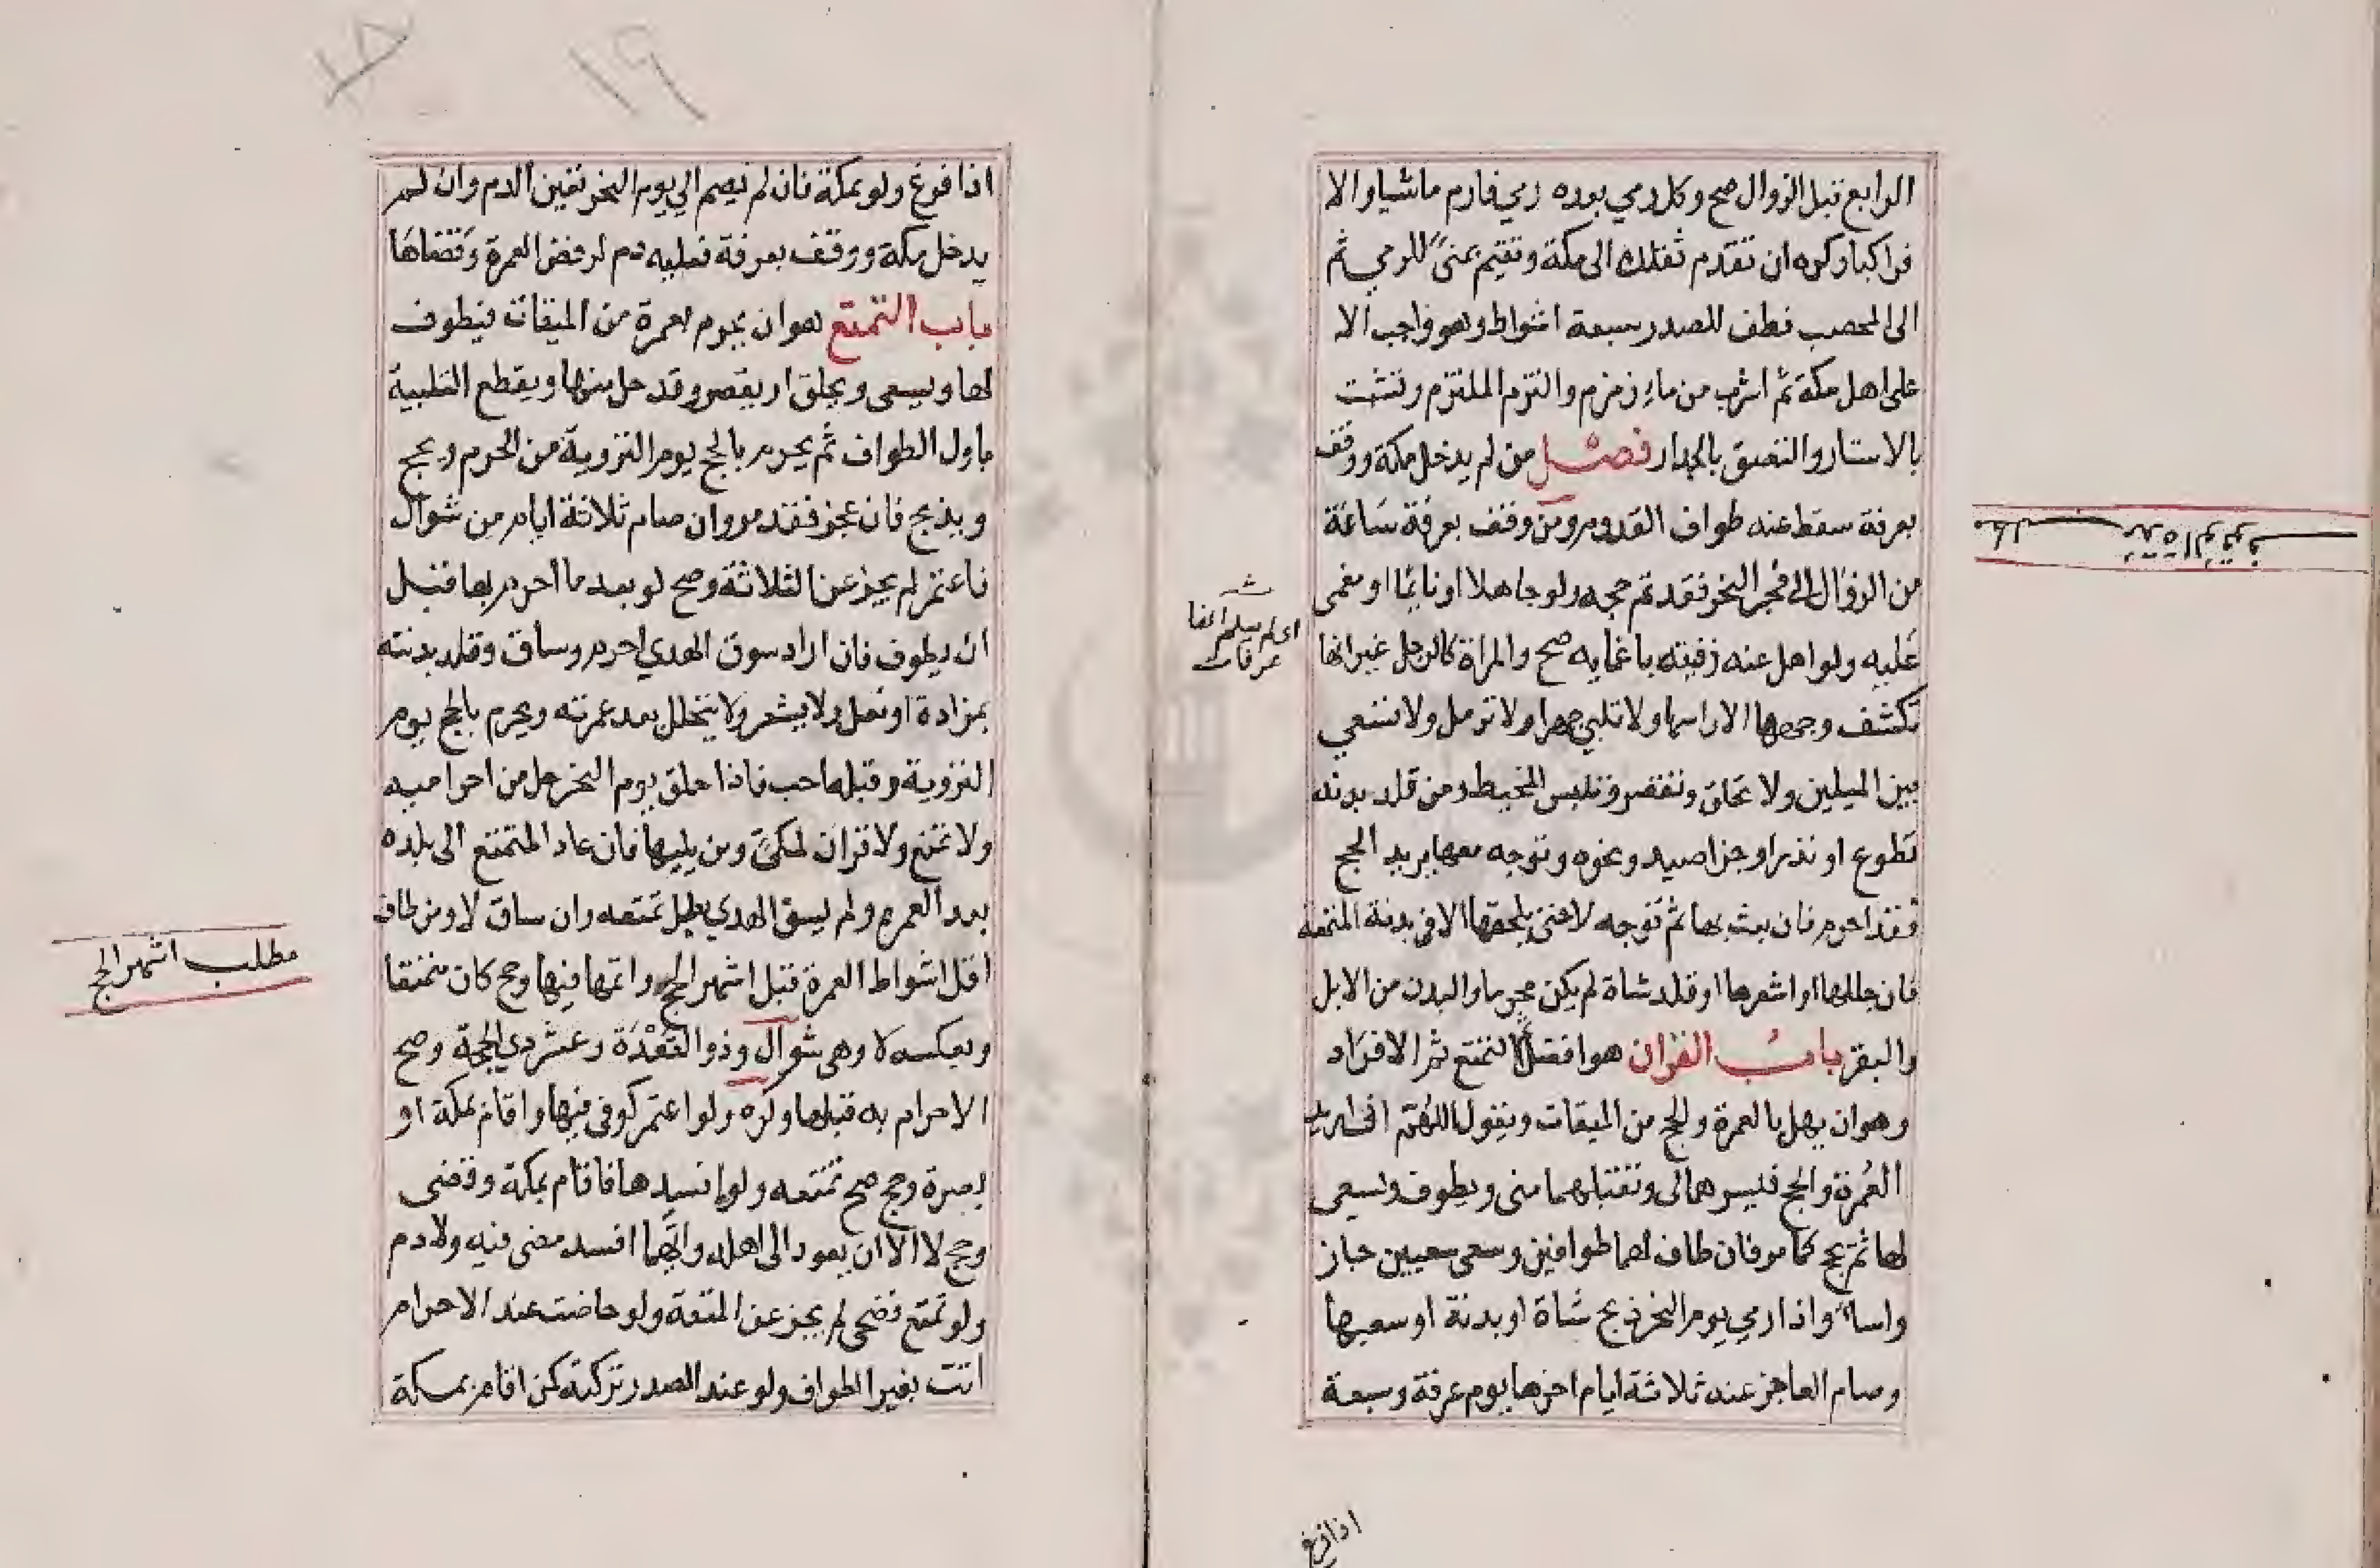 الرابع قبل الزوال صح وكل رمي بعده رمي فارم ماشيا والا
فراكبا وكره ان تقدم ثقلك الى مكة وتقيم بمنى للرمي ثم
الى المحصب فطف للصدر سبعة اشواط وهو واجب الا
على اهل مكة ثم اشرب من ماء زمزم والتزم الملتزم وتشبث
بالاستار والتصق بالجدار فصل من لم يدخل مكة ووقف
بعرفة سقط عنه طواف القدوم ومن وقف بعرفة ساعة
من الزوال الى فجر النحر فقد تم حجه ولو جاهلا او نائما او مغمى
عليه ولو اهل عنه رفيقه باغمايه صح والمراة كالرجل غير انها
تكشف وجهها لا راسها ولا تلبي جهرا ولا ترمل ولا تسعي
بين الميلين ولا تحلق وتقصر وتلبس المخيط ومن قلد بدنة
تطوع او نذر او جزا صيد ونحوه وتوجه معها يريد الحج
فقد احرم فان بعث بها ثم توجه لا حتى يلحقها الا في بدنة المتعة
فان جللها او اشعرها او قلد شاة لم يكن محرما والبدن من الابل
والبقر باب القران هو افضل التمتع ثم الافراد
وهو ان يهل بالعمرة والحج من الميقات ويقول اللهم اني اريد
العمرة والحج فيسرهما لي وتقبلهما مني ويطوف ويسعى
لها ثم يحج كما مر فان طاف لهما طوافين وسعى سعيين جاز
واساء واذا رمي يوم النحر ذبح شاة او بدنة او سبعها
وصام العاجز عنه ثلاثة ايام اخرها يوم عرفة وسبعة
اذا فرغ
عرفات
الوقوف
اذا فرغ ولو بمكة فان لم يصم الي يوم النحر تعين الدم وان لم
يدخل مكة ووقف بعرفة فعليه دم لرفض العمرة وقضاها
باب التمتع هو ان يحرم بعمرة من الميقات فيطوف
لها ويسعى ويحلق او يقصر وقد حل منها ويقطع التلبية
باول الطواف ثم يحرم بالحج يوم التروية من الحرم ويحج
ويذبح فان عجز فقد مر وان صام ثلاثة ايام من شوال
فاعتمر لم يجز عن الثلاثة وصح لو بعد ما احرم بها قبل
ان يطوف فان اراد سوق الهدي احرم وساق وقلد بدنته
بمزادة او نعل ولا يشعر ولا يتحلل بعد عمرته ويحرم بالحج يوم
التروية وقبله احب فاذا حلق يوم النحر حل من احراميه
ولا تمتع ولا قران لمكي ومن يليها فان عاد المتمتع الى بلده
بعد العمرة ولم يسق الهدي بطل تمتعه وان ساق لا ومن طاف
اقل اشواط العمرة قبل اشهر الحج واتمها فيها وحج كان متمتعا
وبعكسه لا وهي شوال وذو القعدة وعشر ذي الحجة وصح
الاحرام به قبلها وكره ولو اعتمر كوفي فيها واقام بمكة او
بصرة وحج صح تمتعه ولو افسدها فاقام بمكة وقضى
وحج لا الا ان يعود الى اهله وايهما افسد مضى فيه ولا دم
ولو تمتع فضحى لم يجز عن المتعة ولو حاضت عند الاحرام
اتت بغير الطواف ولو عند الصدر تركته كمن اقام بمكة
مطلب اشهر الحج
١٩